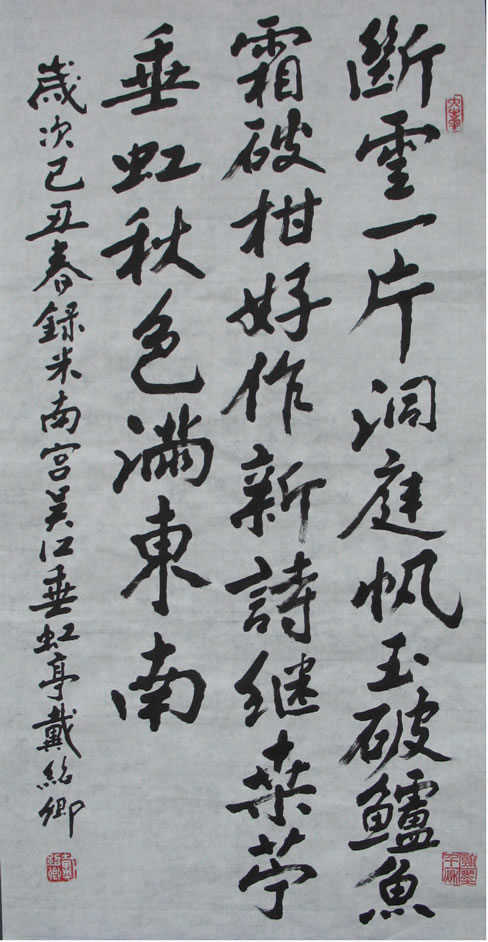 斷雲一片洞庭帆玉破鱸魚
霜破柑好作新詩继桑苧
垂虹秋色滿東南
歲次己丑春録米南宮吴江垂虹亭戴紹卿